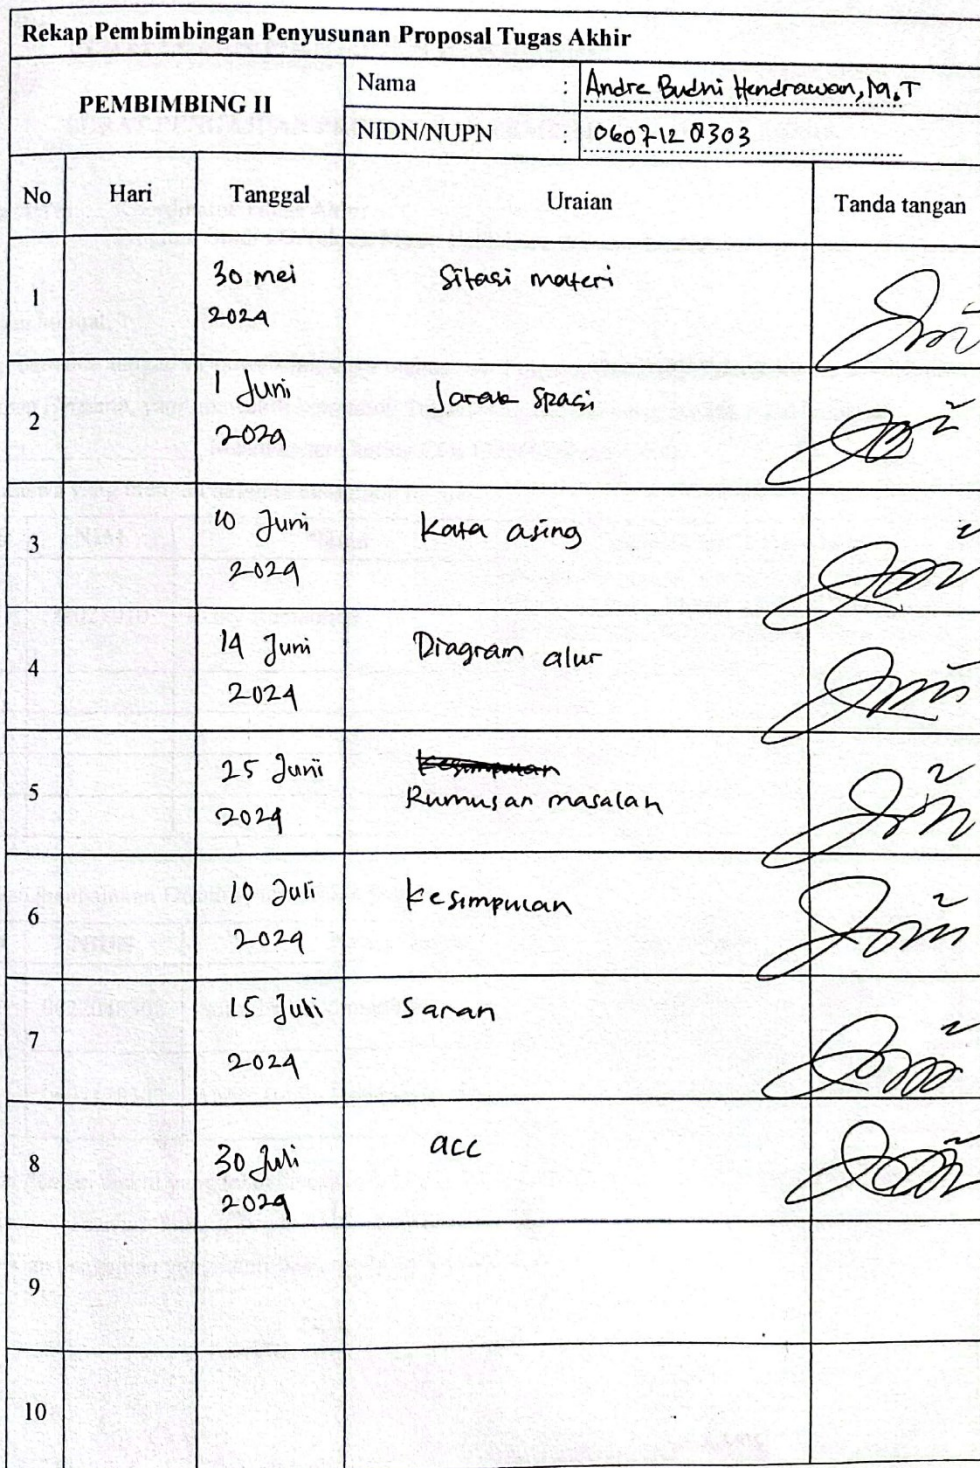 Rekap Pembimbingan Penyusunan Proposal Tugas Akhir
PEMBIMBING II
Nama : Andre Budhi Hendrawan, M.T
NIDN/NUPN : 0607128303
No Hari Tanggal Uraian Tanda tangan
1 30 mei 2024 Sitasi materi
2 1 Juni 2024 Jarak spasi
3 10 Juni 2024 Kata asing
4 14 Juni 2024 Diagram alur
5 25 Juni 2024 Kesimpulan
Rumusan masalah
6 10 Juli 2024 Kesimpulan
7 15 Juli 2024 Saran
8 30 Juli 2024 acc
9
10